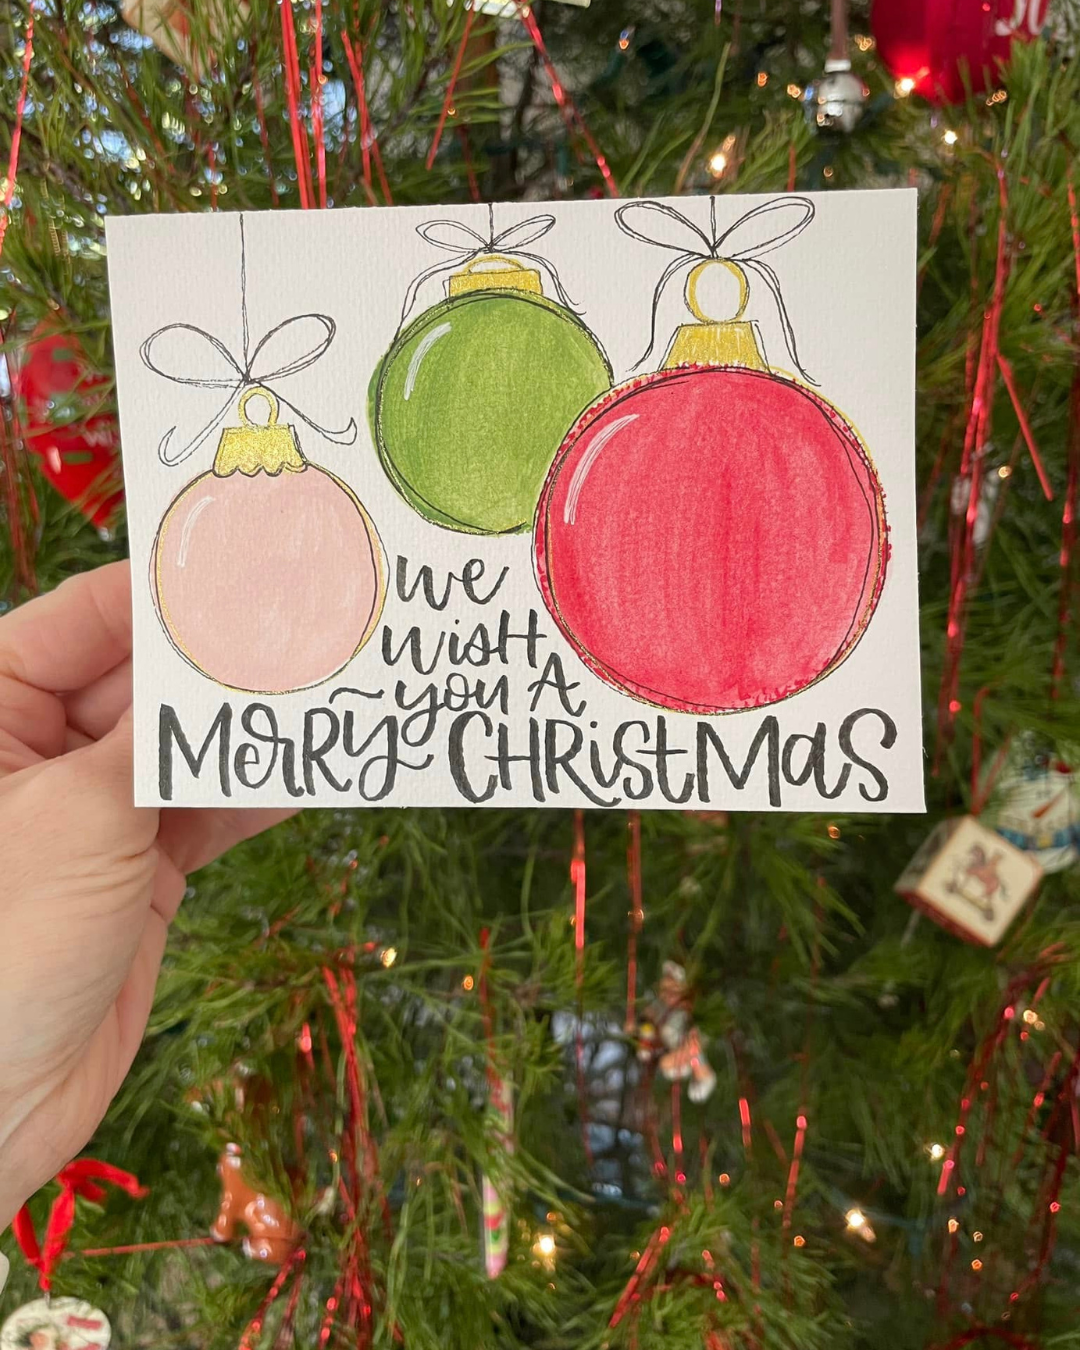 we
wisH
you A
MeRRy CHRistMaS